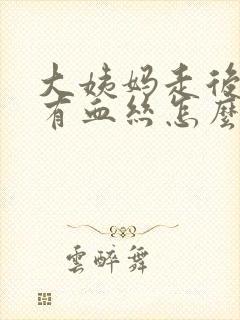 大姨妈走後
有血丝怎麼
雲醉舞